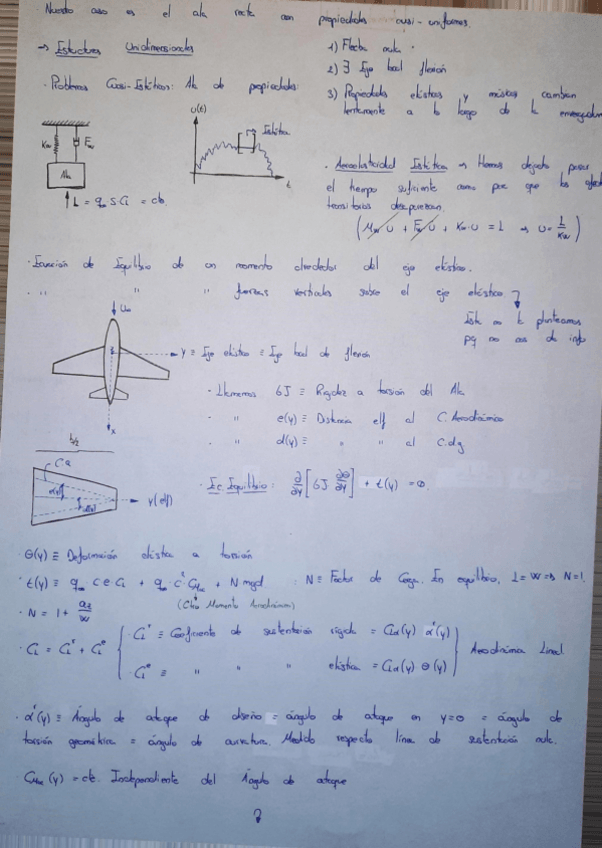 Nuestro caso es el ala recta con propiedades cuasi-uniformes.
→ Estructuras Unidimensionales
1) Flecha nula.
2) ∃ Eje local flexión
3) Propiedades elásticas y másicas cambian lentamente a lo largo de la envergadura
· Problemas Cuasi-Estáticos: Ala de propiedades:
Kw
Ala
↑ L = q∞ S Cl = cte.
u(t)
Estática
t
· Aeroelasticidad Estática → Hemos dejado pasar
el tiempo suficiente como para que los efectos
transitorios desaparezcan.
(Mw ü + Fw u̇ + Kw·u = L → u = L/Kw)
· Ecuación de Equilibrio de un momento alrededor del eje elástico.
· " " " fuerzas verticales sobre el eje elástico
Esta no la planteamos
pq no nos da info
U∞
y ≡ Eje elástico ≡ Eje local de flexión
x
· Llamamos GJ ≡ Rigidez a torsión del Ala
· " e(y) ≡ Distancia elf al C. Aerodinámico
· " d(y) ≡ " " al C.dg
b/2
C a
y (elf)
· Ec. Equilibrio: ∂/∂y [GJ ∂θ/∂y] + t(y) = 0.
· θ(y) ≡ Deformación elástica a torsión
· t(y) ≡ q∞ c e Cl + q∞ c² CMac + N m g d : N ≡ Factor de Carga. En equilibrio, L = W → N = 1.
(Cte Momento Aerodinámico)
· N = 1 + az/W
· Cl = Cl^r + Cl^e
· Cl^r ≡ Coeficiente de sustentación rígida = Clα(y) α^r(y)
· Cl^e ≡ " " " elástica = Clα(y) θ(y)
Aerodinámica Lineal
· α^r(y) ≡ Ángulo de ataque de diseño = ángulo de ataque en y=0 = ángulo de
torsión geométrica = ángulo de curvatura. Medido respecto línea de sustentación nula.
· CMac (y) = cte. Independiente del Ángulo de ataque